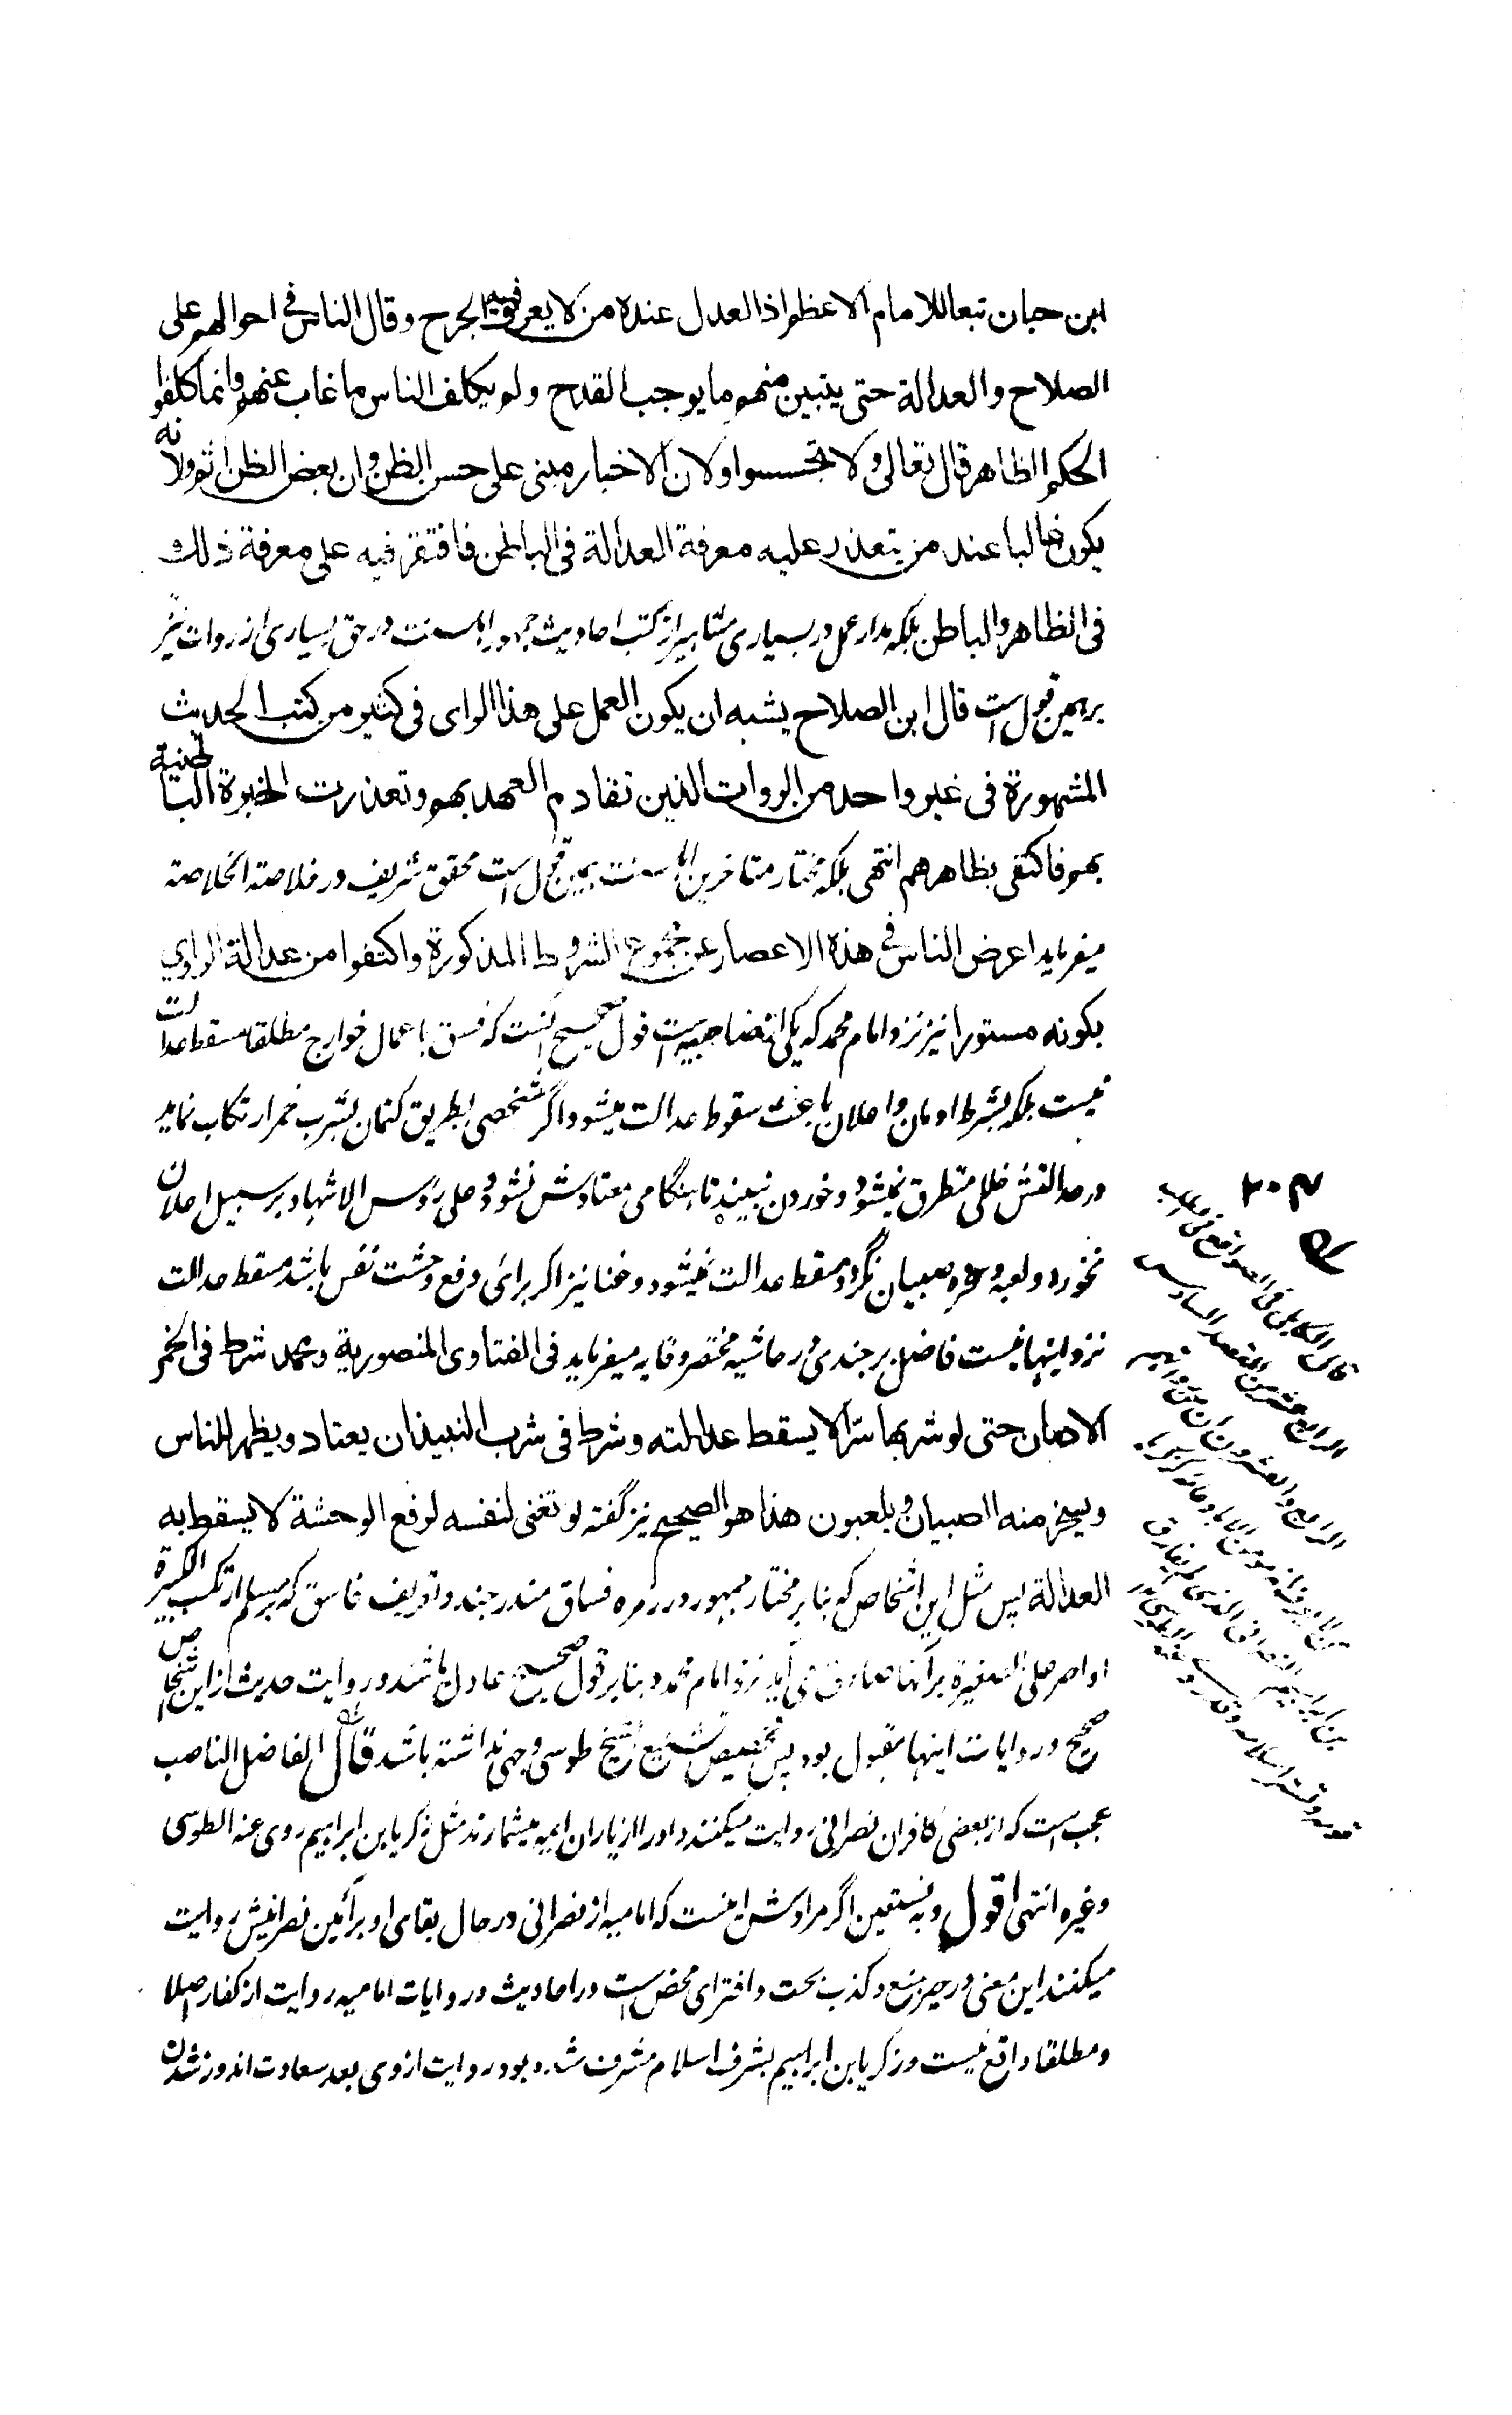 ابن حبان تبعا للامام الاعظم اذ العدل عنده من لا يعرف فيه الجرح وقال الناس فی احوالهم علی
الصلاح والعدالة حتی يتبين منهم ما يوجب القدح ولم يكلف الناس ما غاب عنهم وانما كلفوا
الحكم الظاهر قال تعالی ولا تجسسوا ولان الاخبار مبنی علی حسن الظن وان بعض الظن اثم ولانه
يكون غالبا عند من يتعذر عليه معرفة العدالة فی الباطن فاقتصر فيه علی معرفة ذلك
فی الظاهر والباطن بلکه مدار عمل در بسیاری مشاهیر از کتب احادیث جمهور اهل سنت در حق بسیاری از روات نیز
بر همین قول است قال ابن الصلاح يشبه ان يكون العمل علی هذا الرای فی كثير من كتب الحديث
المشهورة فی غير واحد من الروات الذين تقادم العهد بهم وتعذرت الخبرة الباطنية
بهم فاكتفی بظاهرهم انتهی بلکه مختار متاخرین اهل سنت همین قول است محقق شریف در خلاصة الخلاصة
میفرماید اعرض الناس فی هذه الاعصار عن مجموع الشروط المذكورة واكتفوا من عدالة الراوي
بكونه مستورا نیز نزد امام محمد که یکی از صاحبین است قول صحیح آنست که فسق باعمال خوارج مطلقا مسقط عدالت
نیست بلکه بشرط ادمان و اعلان باعث سقوط عدالت میشود اگر شخصی بطریق کتمان بشرب خمر ارتکاب نماید
در عدالتش خللی متطرق نمیشود و خوردن نبیذ تا هنگامی معتادش نشود و علی رؤس الاشهاد بر سبیل اعلان
نخورد و لعبه و سخره صبیان نگردد مسقط عدالت نمیشود و غنا نیز اگر برای دفع وحشت نفس باشد مسقط عدالت
نزد اینها نیست فاضل برجندی در حاشیه مختصر وقایه میفرماید فی الفتاوی المنصورية ومحمد شرط فی الخمر
الادمان حتی لو شربها سرا لا يسقط عدالته وشرط فی شرب النبيذ ان يعتاد ويظهر للناس
ويسخر منه الصبيان و يلعبون هذا هو الصحيح نیز گفته لو تغنی لنفسه لرفع الوحشة لا يسقط به
العدالة پس مثل این اشخاص که بنا بر مختار جمهور در زمره فساق مندرجند و تعریف فاسق که مسلم ارتکب الكبيرة
او اصر علی الصغيرة بر آنها صادق می آید نزد امام محمد و بنا بر قول صحیح عادل باشند و روایت حدیث از این اشخاص
صحیح و روایات اینها مقبول بود پس تخصیص تشنیع بشیخ طوسی وجهی نداشته باشد قال الفاضل الناصب
عجب است که از بعضی کافران نصرانی روایت میکنند و او را از یاران ایمه میشمارند مثل زکریا بن ابراهیم روی عنه الطوسی
وغيره انتهی اقول وبه نستعین اگر مرادش اینست که امامیه از نصرانی در حال بقای او بر آئین نصرانیش روایت
میکنند این معنی در حیز منع و کذب بحت و افترای محض است در احادیث و روایات امامیه روایت از کفار اصلا
و مطلقا واقع نیست و زکریا بن ابراهیم بشرف اسلام مشرف شده بود روایت از وی بعد سعادت اندوز شدن
قال الکابلی فی الصواقع فی المطلب
الرابع عشر من المقصد السادس